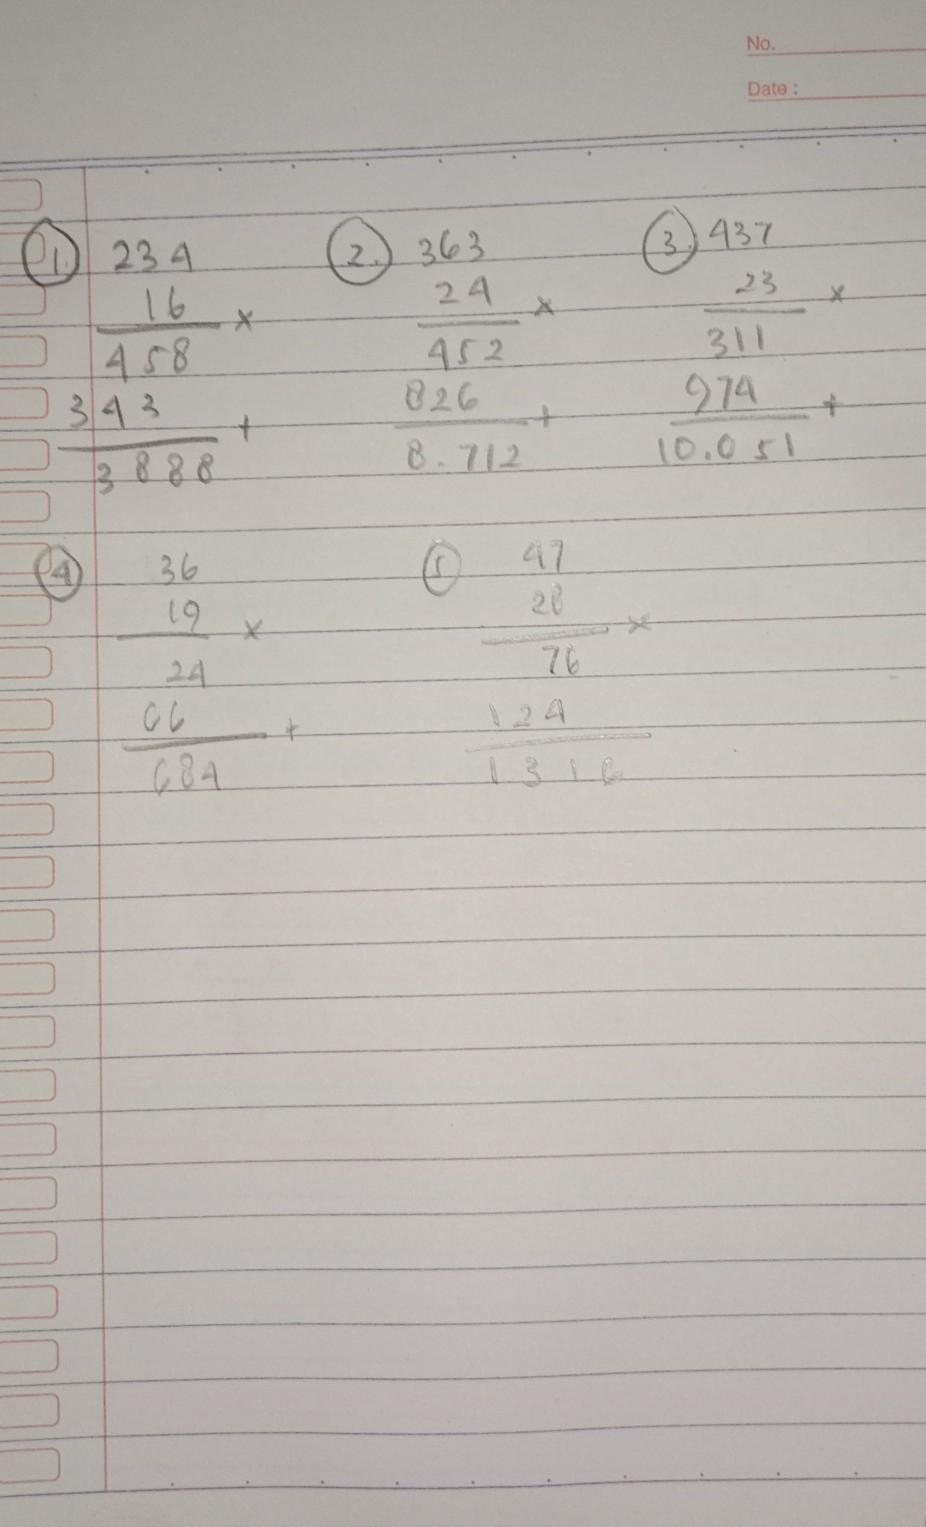 No.
Date :
1. 234 2. 363 3. 437
16 x 24 x 23 x
458 452 311
343 + 826 + 974 +
3888 8.712 10.051
4 36 5 47
19 x 28 x
24 76
66 + 124
684 1316